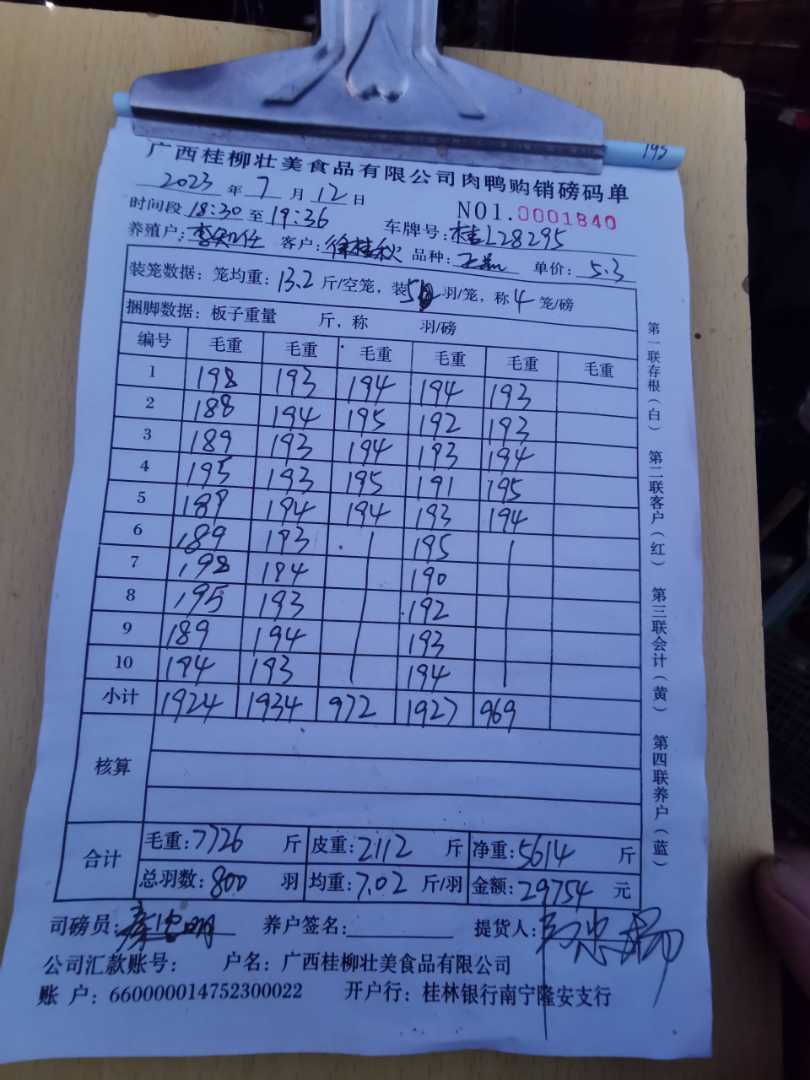 195
广西桂柳壮美食品有限公司肉鸭购销磅码单
2023年7月12日 NO1.0001840
时间段18:30至19:36 车牌号:桂L28295
养殖户: 客户:徐桂秋 品种: 单价:5.3
装笼数据:笼均重:13.2斤/空笼,装5羽/笼,称4笼/磅
捆脚数据:板子重量 斤,称 羽/磅
编号 毛重 毛重 毛重 毛重 毛重 毛重
1 198 193 194 194 193
2 188 194 195 192 193
3 189 193 194 193 194
4 195 193 195 191 195
5 189 194 194 193 194
6 189 193 195
7 198 194 190
8 195 193 192
9 189 194 193
10 194 193 194
小计 1924 1934 972 1927 969
核算
合计 毛重:7726斤 皮重:2112斤 净重:5614斤
总羽数:800羽 均重:7.02斤/羽 金额:29754元
司磅员: 养户签名: 提货人:
公司汇款账号: 户名:广西桂柳壮美食品有限公司
账户:660000014752300022 开户行:桂林银行南宁隆安支行
第一联存根(白) 第二联客户(红) 第三联会计(黄) 第四联养户(蓝)